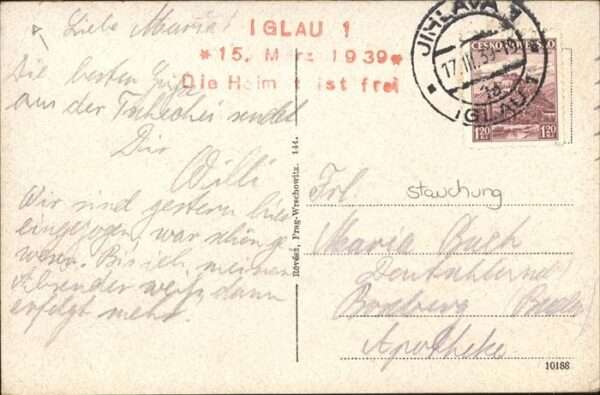 Liebe Maria!
Die besten Grüße
aus der Tschechei sendet
Dir
Willi
Wir sind gestern hier
eingezogen, war schön ge
wesen. Bis ich meinen
Absender weiß, dann
erfolgt mehr.
IGLAU 1
*15. März 1939*
Die Heimat ist frei
JIHLAVA 1
17.III.39
IGLAU 1
ČESKOSLOVENSKO
1.20 1.20
Révész, Prag-Wrschowitz. 144.
Frl.
stauchung
Maria
Deutschland
Boxberg (Baden)
Apotheke
10188